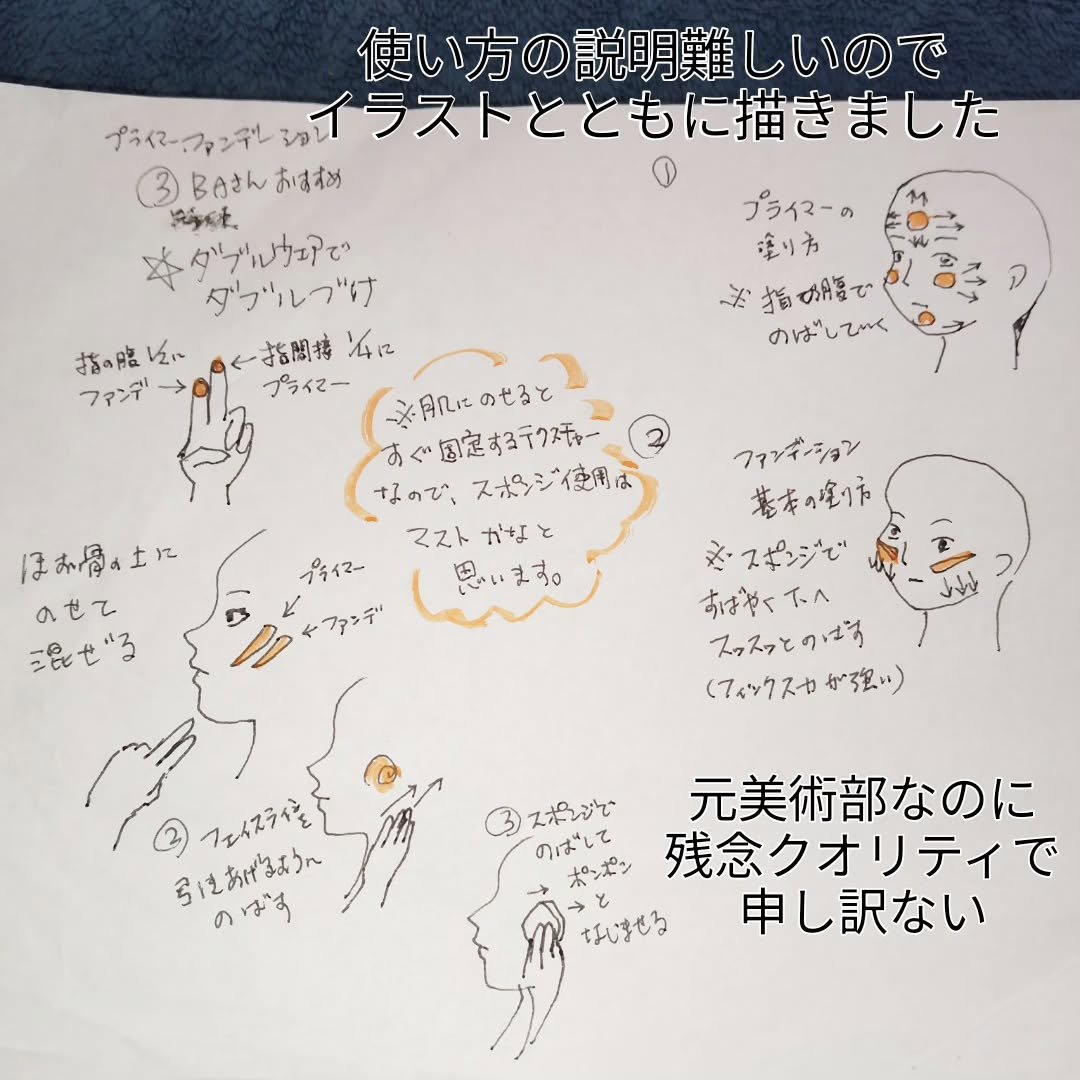 使い方の説明難しいので
イラストとともに描きました
プライマー、ファンデーション
③ BAさんおすすめ
☆ダブルウェアで
ダブルづけ
指の腹1/2に
ファンデ→
←指間接1/4に
プライマー
ほお骨の上に
のせて
混ぜる
プライマー
←ファンデ
② フェイスラインを
引きあげるように
のばす
③ スポンジで
のばして
ポンポン
と
なじませる
※肌にのせると
すぐ固定するテクスチャー
なので、スポンジ使用は
マストかなと
思います。
①
プライマーの
塗り方
※指の腹で
のばしていく
②
ファンデーション
基本の塗り方
※スポンジで
すばやく下へ
スッスッとのばす
(フィックス力が強い)
元美術部なのに
残念クオリティで
申し訳ない